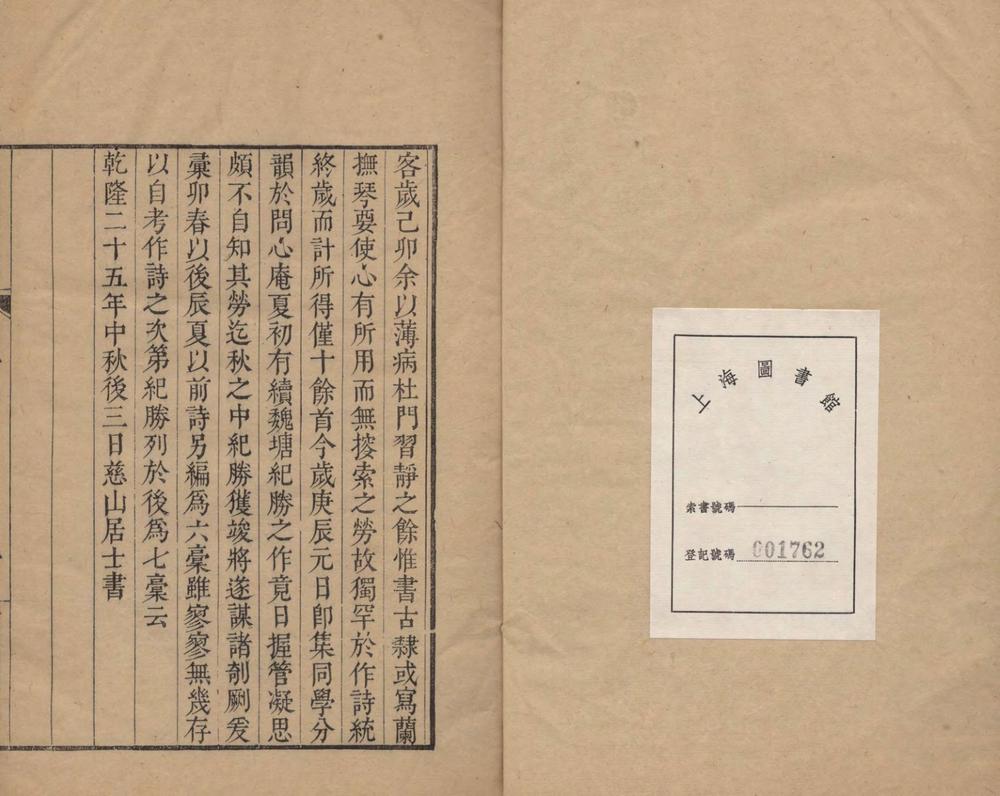 客歲己卯余以薄病杜門習靜之餘惟書古隸或寫蘭
撫琴要使心有所用而無揆索之勞故獨罕於作詩統
終歲而計所得僅十餘首今歲庚辰元日卽集同學分
韻於問心庵夏初有續魏塘紀勝之作竟日握管凝思
頗不自知其勞迄秋之中紀勝獲竣將遂謀諸剞劂爰
彙卯春以後辰夏以前詩另編爲六稾雖寥寥無幾存
以自考作詩之次第紀勝列於後爲七稾云
乾隆二十五年中秋後三日慈山居士書
上海圖書館
索書號碼
登記號碼 001762